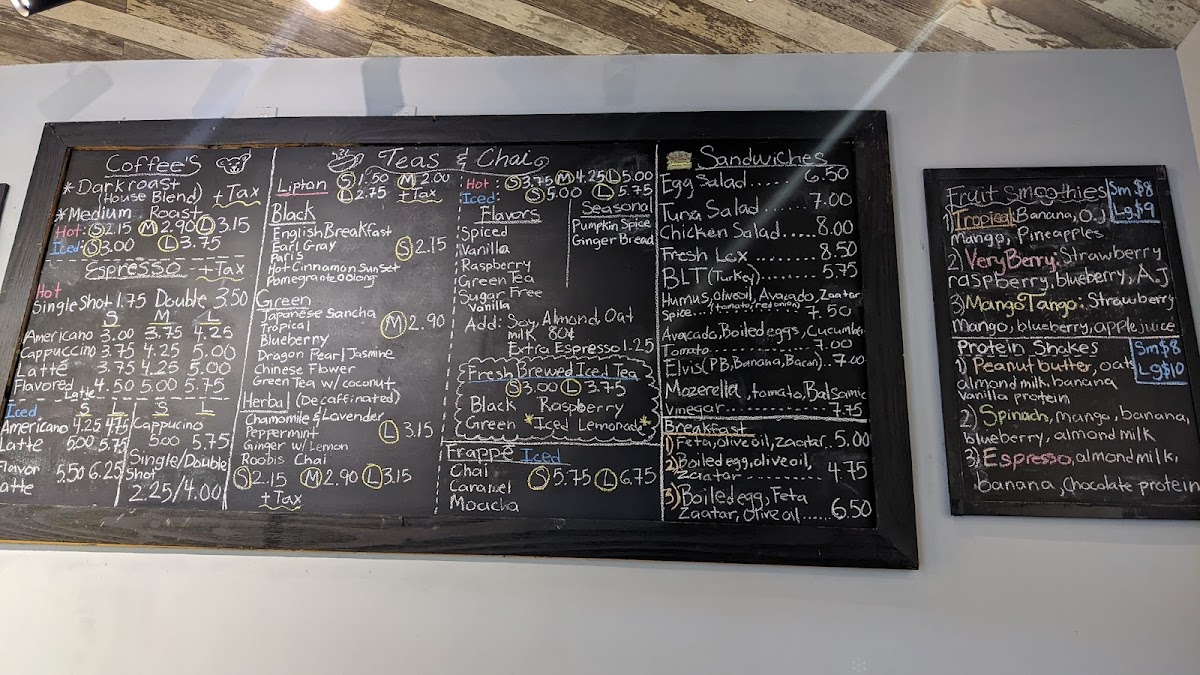 Coffee'S
*Darkroast
(House Blend) +Tax
*Medium Roast
Hot: S 2.15 M 2.90 L 3.15
Iced: S 3.00 L 3.75
Espresso +Tax
Hot
Single Shot 1.75 Double 3.50
S M L
Americano 3.00 3.75 4.25
Cappuccino 3.75 4.25 5.00
Latte 3.75 4.25 5.00
Flavored Latte 4.50 5.00 5.75
Iced S L
Americano 4.25 4.75
Latte 5.00 5.75
Flavor 5.50 6.25
Latte
S L
Cappucino
5.00 5.75
Single/Double
Shot
2.25/4.00
Teas & Chai
Lipton S 1.50 M 2.00
L 2.75 +Tax
Black
English Breakfast
Earl Gray
Paris S 2.15
Hot Cinnamon Sunset
Pomegranate Oolong
Green
Japanese Sancha
Tropical M 2.90
Blueberry
Dragon Pearl Jasmine
Chinese Flower
Green Tea w/ coconut
Herbal (Decaffinated)
Chamomile & Lavender
Peppermint L 3.15
Ginger w/ Lemon
Roobis Chai
S 2.15 M 2.90 L 3.15
+Tax
Hot: S 3.75 M 4.25 L 5.00
Iced: S 5.00 L 5.75
Flavors
Spiced
Vanilla
Raspberry
Green Tea
Sugar Free
Vanilla
Seasona
Pumpkin Spice
Ginger Bread
Add: Soy, Almond, Oat
milk 80¢
Extra Espresso 1.25
Fresh Brewed Iced Tea
S 3.00 L 3.75
Black Raspberry
Green *Iced Lemonade*
Frappé Iced
Chai
Caramel S 5.75 L 6.75
Moacha
Sandwiches
Egg Salad..... 6.50
Tuna Salad..... 7.00
Chicken Salad..... 8.00
Fresh Lox..... 8.50
BLT (Turkey)..... 5.75
Humus, olive oil, Avocado, Zaatar
Spice... (tomato, red onion) 7.50
Avocado, Boiled eggs, Cucumber
Tomato..... 7.00
Elvis (PB, Banana, Bacon). 7.00
Mozerella, tomato, Balsamic
Vinegar..... 7.75
Breakfast
1) Feta, olive oil, zaatar. 5.00
2) Boiled egg, olive oil,
Zaatar..... 4.75
3) Boiled egg, Feta
Zaatar, Olive oil..... 6.50
Fruit Smoothies Sm $8
Lg $9
1) Tropical: Banana, O.J.
Mango, Pineapples
2) Very Berry: Strawberry
raspberry, blueberry, AJ
3) Mango Tango: Strawberry
Mango, blueberry, apple juice
Protein Shakes Sm $8
Lg $10
1) Peanut butter, oats
almond milk, banana
Vanilla protein
2) Spinach, mango, banana,
blueberry, almond milk
3) Espresso, almond milk,
banana, Chocolate protein